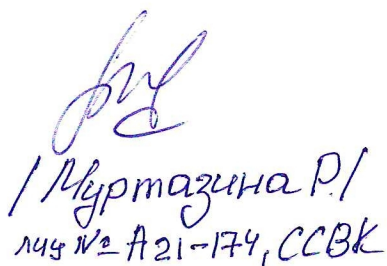 /Муртазина Р./
лиц № А21-174, ССВК